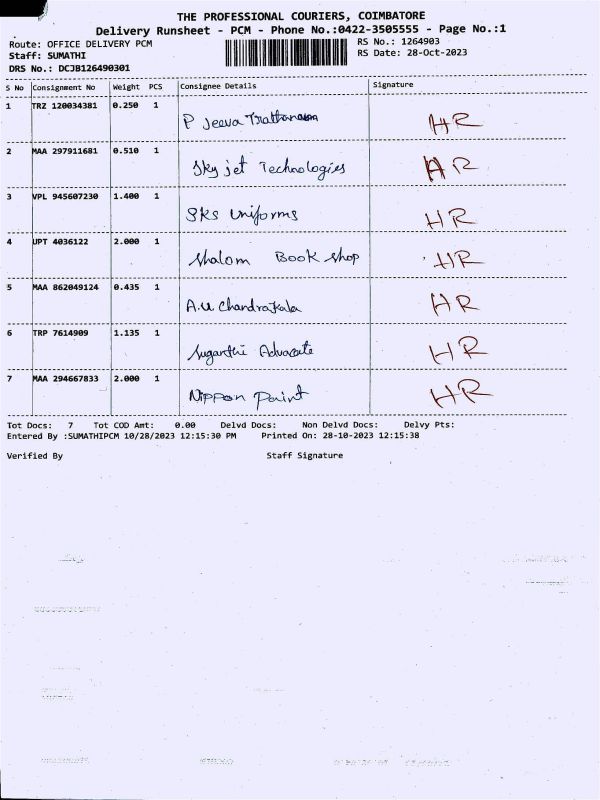 THE PROFESSIONAL COURIERS, COIMBATORE
Delivery Runsheet - PCM - Phone No.:0422-3505555 - Page No.:1
Route: OFFICE DELIVERY PCM RS No.: 1264903
Staff: SUMATHI RS Date: 28-Oct-2023
DRS No.: DCJB126490301
S No Consignment No Weight PCS Consignee Details Signature
1 TRZ 120034381 0.250 1 P Jeeva HR
2 MAA 297911681 0.510 1 Sky jet Technologies HR
3 VPL 945607230 1.400 1 SKS Uniforms HR
4 UPT 4036122 2.000 1 Shalom Book shop HR
5 MAA 862049124 0.435 1 A.U Chandrakala HR
6 TRP 7614909 1.135 1 Suganthi Advocate HR
7 MAA 294667833 2.000 1 Nippon Paint HR
Tot Docs: 7 Tot COD Amt: 0.00 Delvd Docs: Non Delvd Docs: Delvy Pts:
Entered By :SUMATHIPCM 10/28/2023 12:15:30 PM Printed On: 28-10-2023 12:15:38
Verified By Staff Signature